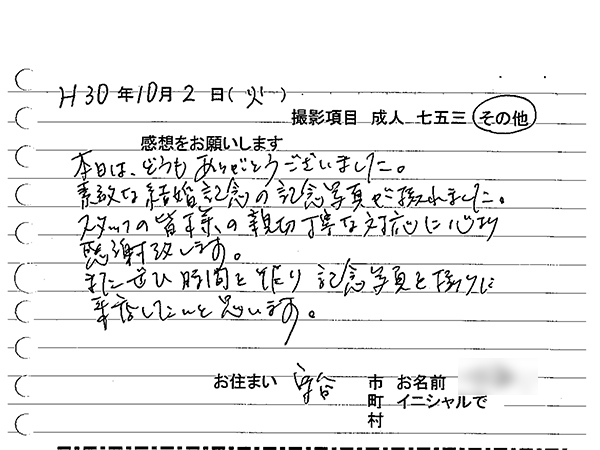 H30年10月2日(火)
撮影項目 成人 七五三 その他
感想をお願いします
本日は、どうもありがとうございました。
素敵な結婚記念の記念写真が撮れました。
スタッフの皆様の親切丁寧な対応に心より
感謝致します。
またぜひ時間を作り記念写真を撮りに
来店したいと思います。
お住まい 守谷 市 お名前
町 イニシャルで
村